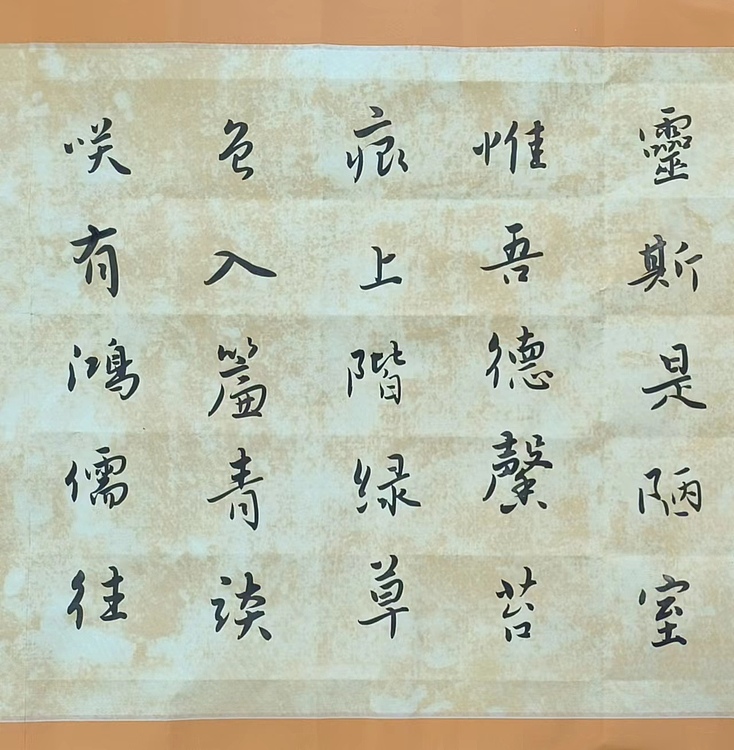 靈斯是陋室
惟吾德馨苔
痕上階緑草
色入簾青談
咲有鴻儒往